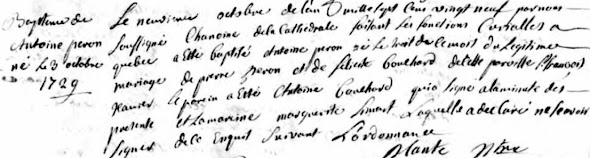 Baptesme de
Antoine peron
né le 3 octobre
1729
Le neuvieme octobre de lan mil sept cens vingt neuf par nous
soussigné Chanoine de la Cathedrale faisant les fonctions Curialles a
quebec a Esté baptisé Antoine peron né le troit de ce mois du legitime
mariage de pierre Peron et de felicité Bouchard de cette paroisse St françois
Xavier le parein a Esté Antoine Bouchard qui a signé a la minute des
presente et La mareine marguerite simart Laquelle a declaré ne scavoir
signer de ce Enquis suivant L'ordonnance
Plante Ptre